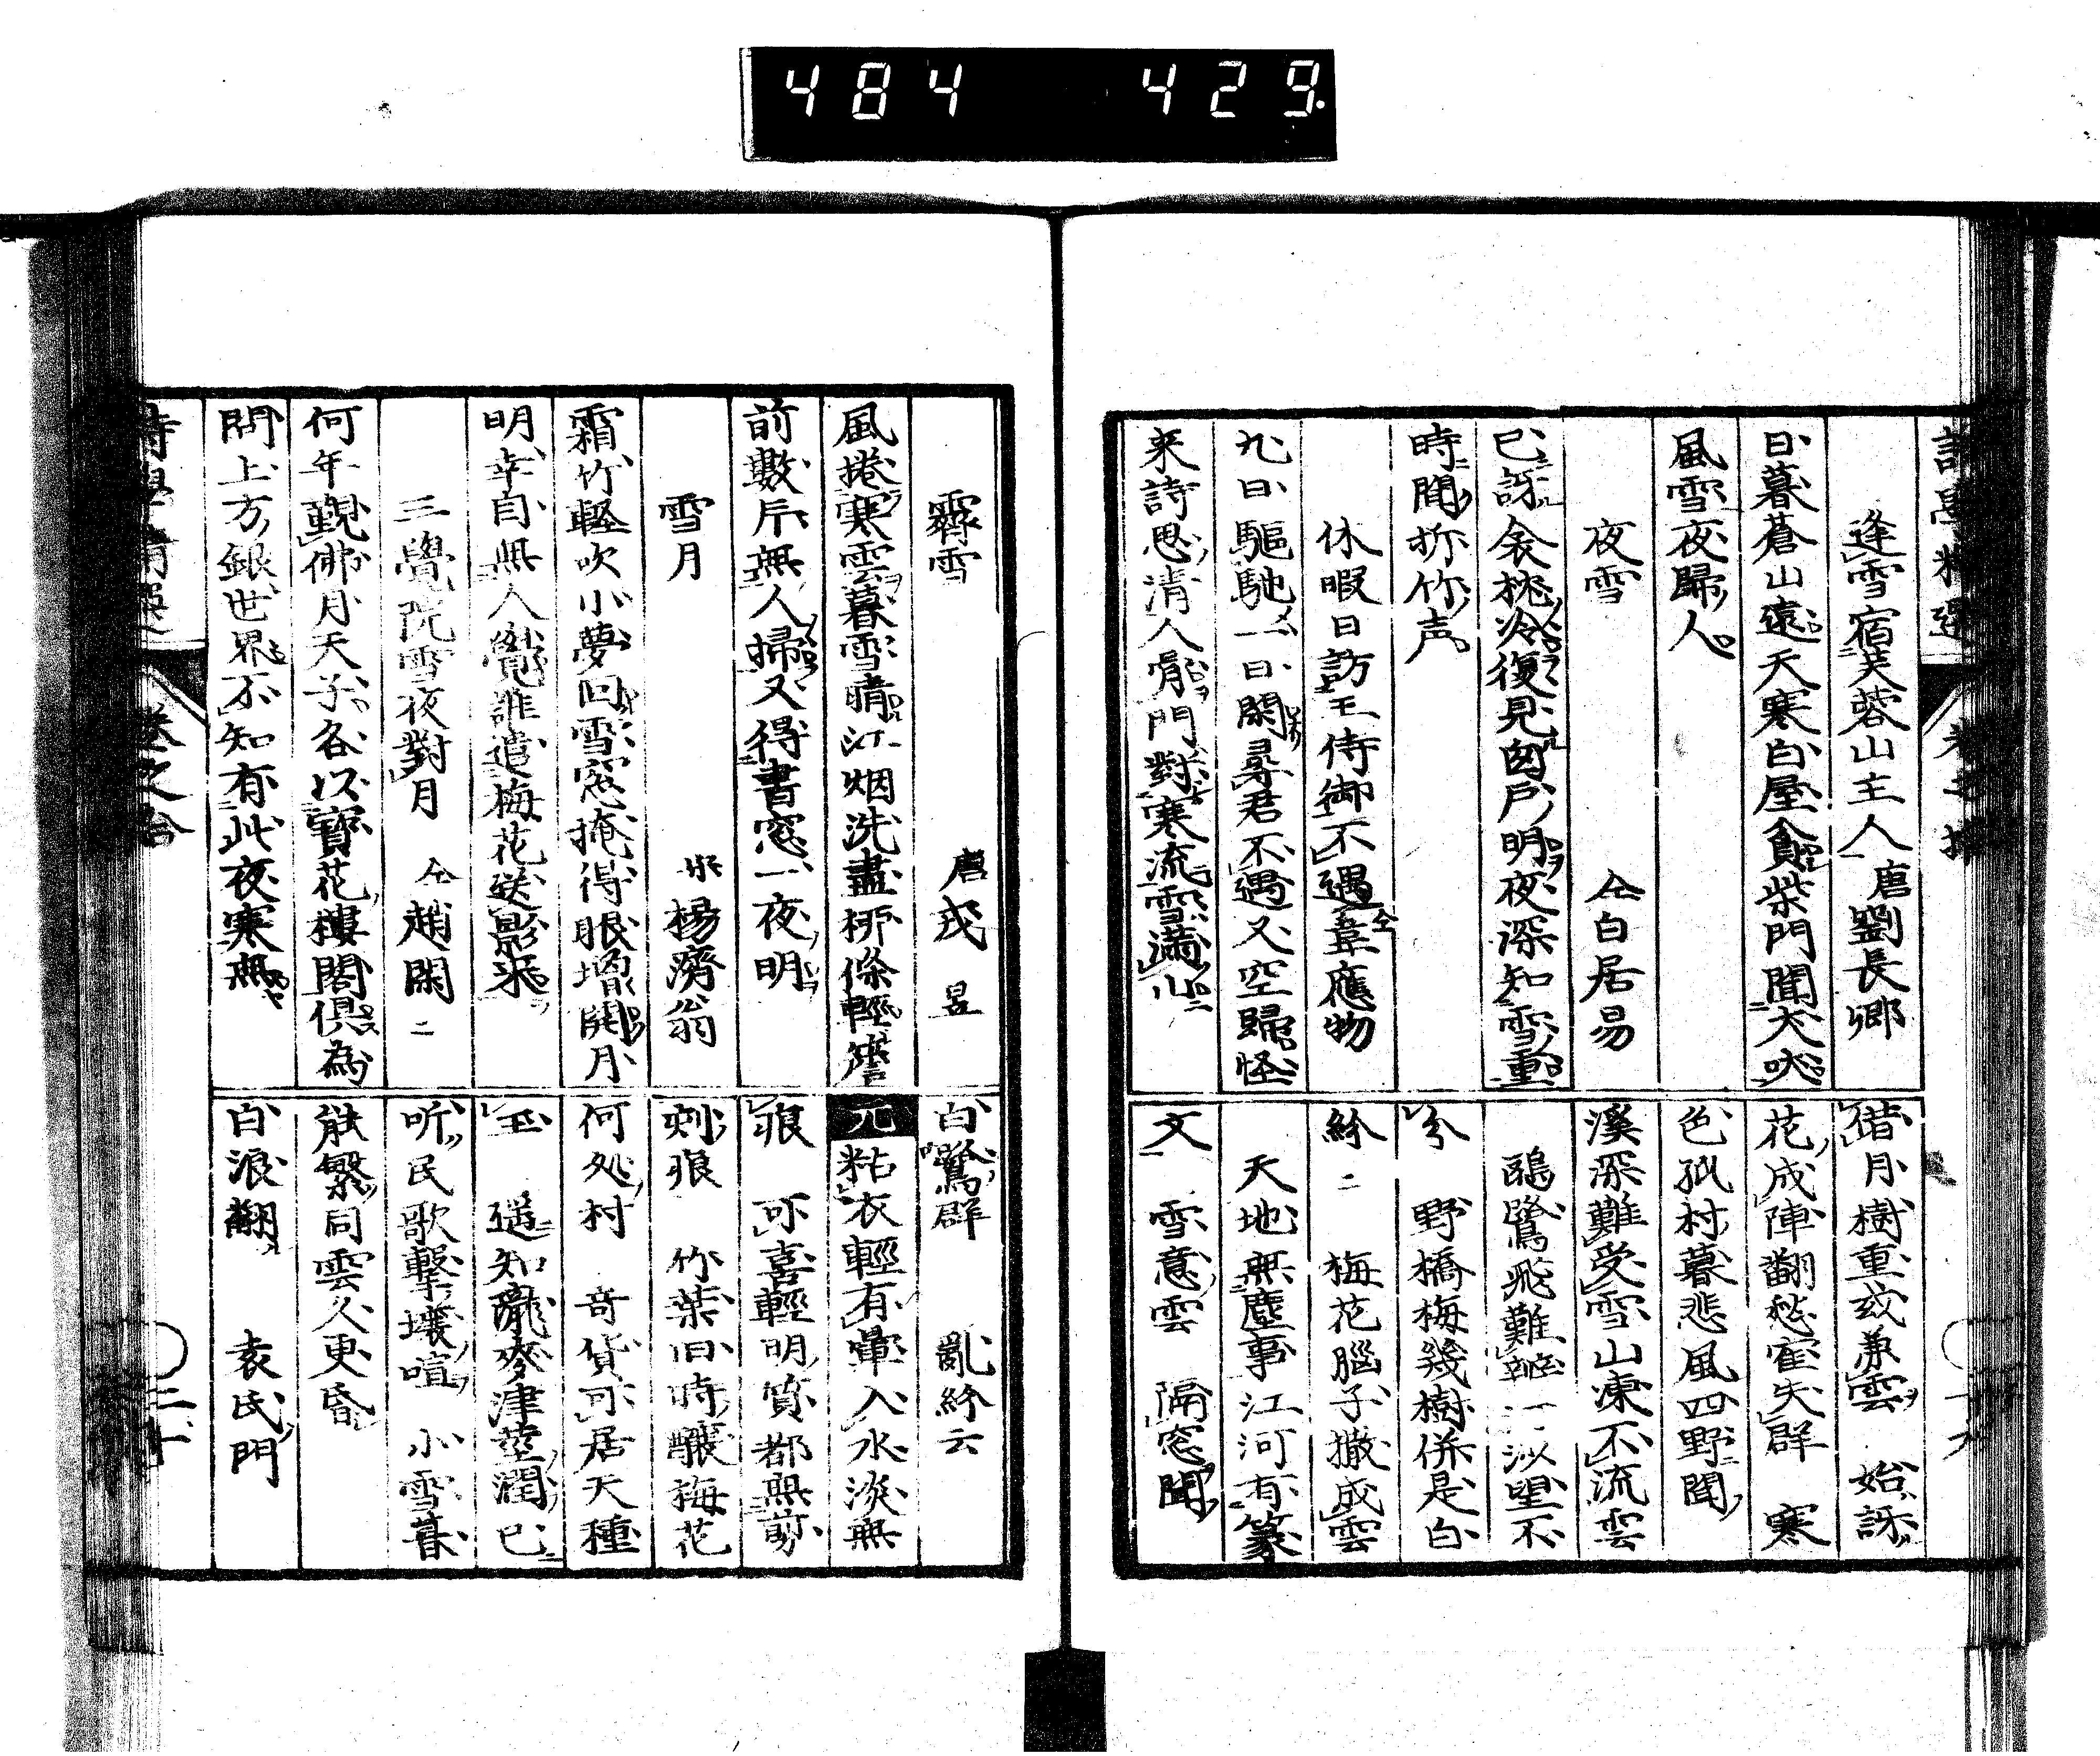 484 429.
逢雪宿芙蓉山主人 唐劉長卿
日暮蒼山遠天寒白屋貧柴門聞犬吠
風雪夜歸人
夜雪 仝白居易
已訝衾枕冷復見窓戸明夜深知雪重
時聞折竹声
休暇日訪王侍御不遇 仝韋應物
九日驅馳一日閑尋君不遇又空歸怪
来詩思清人骨門對寒流雪滿山
借月樹重或兼雲 始訝
花成陣翻愁寉失群 寒
色孤村暮悲風四野聞
溪深難受雪山凍不流雲
鷗鷺飛難辨一沙望不
分 野橋梅幾樹併是白
紛二 梅花腦子撒成雲
天地無塵事江河有篆
文 雪意雲 隔窓聞
霽雪 唐戎昱
風捲寒雲暮雪晴江烟洗盡柳條輕簷
前數片無人掃又得書窓一夜明
雪月 宋楊濟翁
霜竹軽吹小夢回雪窓掩得眼増開月
明幸自無人覺誰遣梅花送影来
三覺院雪夜對月 仝趙閑二
何年覲佛月天子各以寶花樓閣倶為
問上方銀世界不知有此夜寒無
白鷺群 亂紛云
元粘衣輕有暈入水淡無
痕 可喜輕明質都無剪
刻痕 竹葉旧時釀梅花
何処村 奇貨可居天種
玉 遥知隴麥津莖潤已
听民歌撃壌喧 小雪暮
能繁同雲久更昏
白浪翻 袁氏門